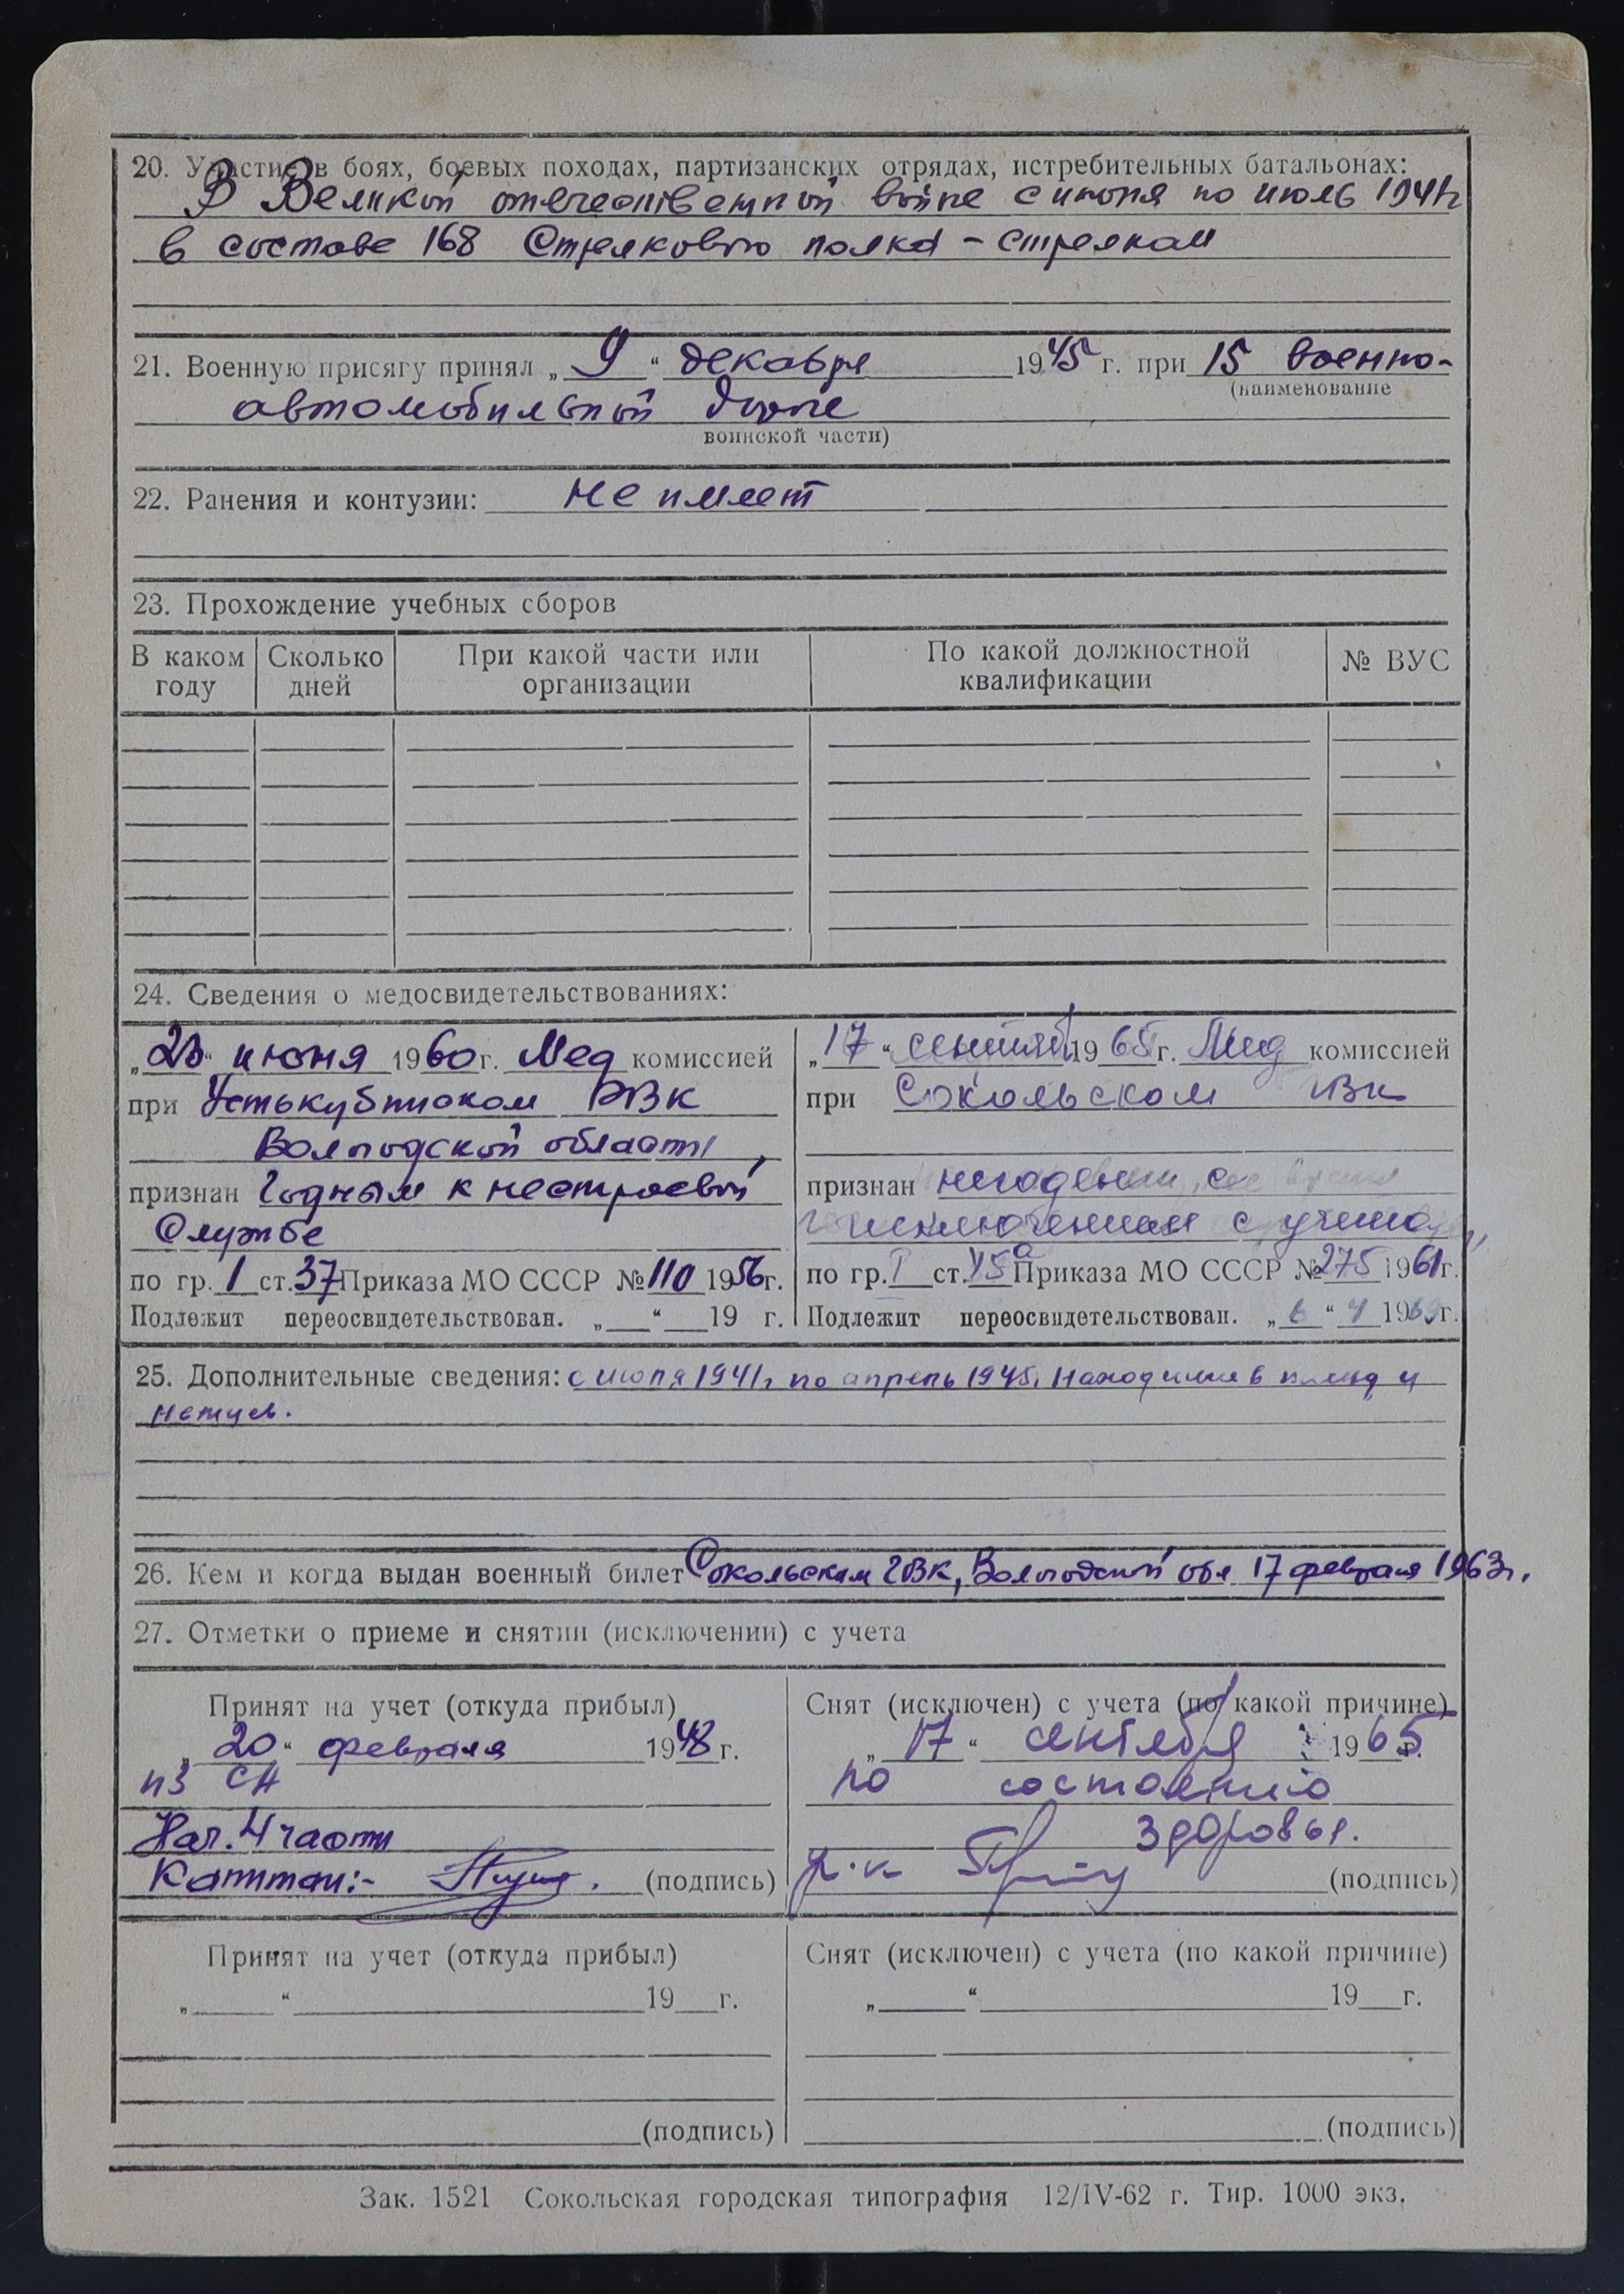 20. Участие в боях, боевых походах, партизанских отрядах, истребительных батальонах:
В Великой отечественной войне с июня по июль 1941г
в составе 168 Стрелкового полка – стрелком
21. Военную присягу принял „ 9 “ декабря 1945 г. при 15 военно-
(наименование
автомобильной
воинской части)
22. Ранения и контузии: не имеет
23. Прохождение учебных сборов
В каком году
Сколько дней
При какой части или организации
По какой должностной квалификации
№ ВУС
24. Сведения о медосвидетельствованиях:
июня 1960г. Мед комиссией
при Устькубинском РВК
Вологодской области,
признан Годным к нестроевой
Службе
по гр. 1 ст. 37 Приказа МО СССР № 110 1956г.
Подлежит переосвидетельствован. „ “ 19 г.
„17“ 1965г. Мед комиссией
при Сокольском
признан негодным, со
исключением с учета,
по гр. I ст. 45а Приказа МО СССР № 275 1961г.
Подлежит переосвидетельствован. „ 6 “ 4 19 г.
25. Дополнительные сведения: с июля 1941г по апрель 1945. Находился в плену у
немцев.
26. Кем и когда выдан военный билет Сокольским ГВК, Вологодской обл 17 февраля 1963г.
27. Отметки о приеме и снятии (исключении) с учета
Принят на учет (откуда прибыл)
„ 20 “ февраля 1948 г.
из СА
Нач. 4 части
Капитан:- (подпись)
Снят (исключен) с учета (по какой причине)
„ 17 “ сентября 1965 г.
по состоянию
здоровья.
(подпись)
Принят на учет (откуда прибыл)
„ “ 19 г.
(подпись)
Снят (исключен) с учета (по какой причине)
„ “ 19 г.
(подпись)
Зак. 1521 Сокольская городская типография 12/IV-62 г. Тир. 1000 экз.